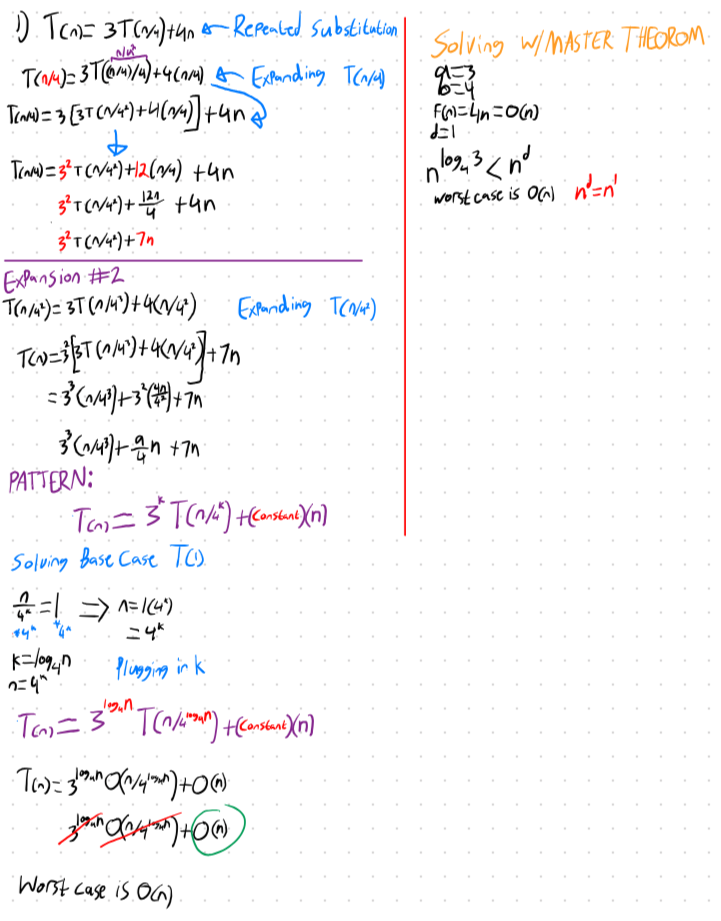 1) T(n) = 3T(n/4)+4n ← Repeated Substitution
n/4²
T(n/4) = 3T((n/4)/4)+4(n/4) ← Expanding T(n/4)
T(n/4) = 3[3T(n/4²)+4(n/4)]+4n
T(n/4) = 3²T(n/4²)+12(n/4) +4n
3²T(n/4²)+ 12n/4 +4n
3²T(n/4²)+7n
Expansion #2
T(n/4²) = 3T(n/4³)+4(n/4²) Expanding T(n/4²)
T(n) = 3²[3T(n/4³)+4(n/4²)]+7n
= 3³(n/4³)+3²(4n/4²)+7n
3³(n/4³)+ 9/4 n +7n
PATTERN:
T(n) = 3^k T(n/4^k) + (constant)(n)
Solving Base Case T(1)
n/4^k = 1 ⇒ n=1(4^k)
*4^k *4^k = 4^k
k=log₄n Plugging in k
n=4^k
T(n) = 3^log₄n T(n/4^log₄n) + (constant)(n)
T(n) = 3^log₄n O(n/4^log₄n)+O(n)
3^log₄n O(n/4^log₄n)+O(n)
Worst case is O(n)
Solving w/MASTER THEOROM
a=3
b=4
F(n)=4n=O(n)
d=1
n^log₄3 < n^d
worst case is O(n) n^d=n^1